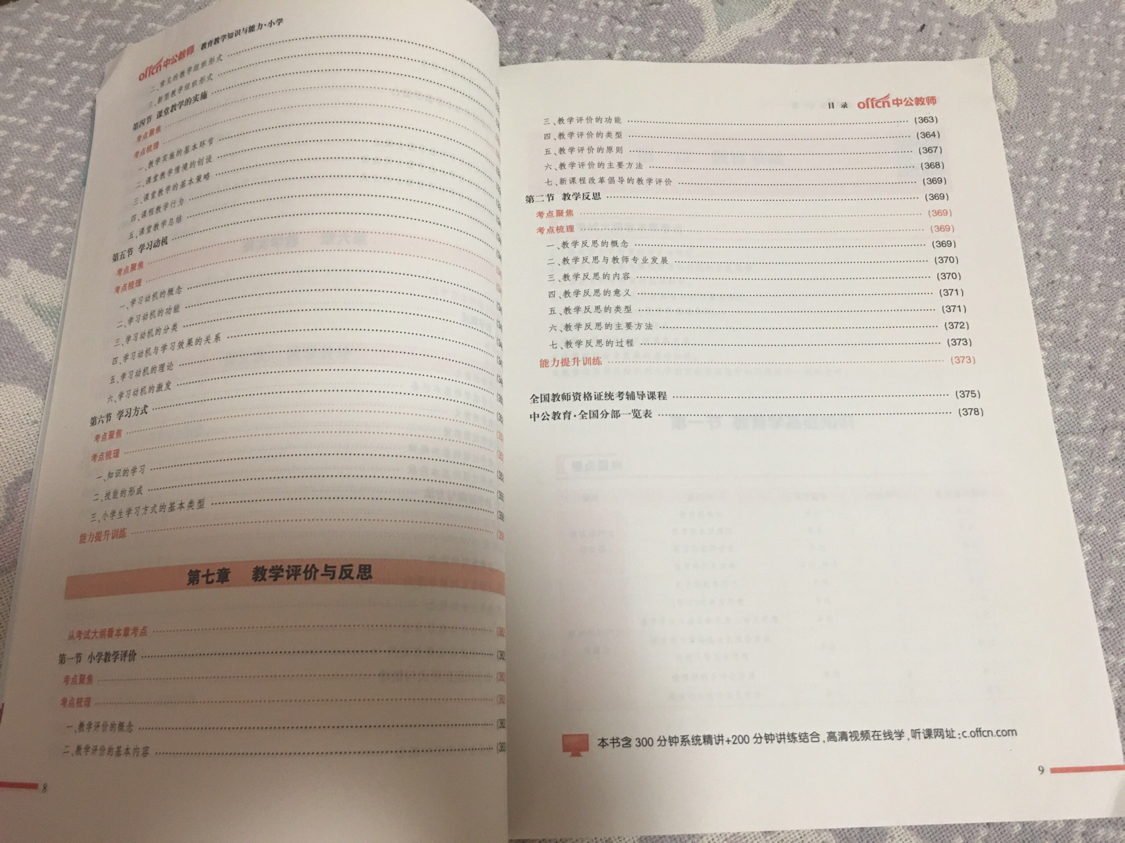 offcn中公教师 教育教学知识与能力·小学
二、常见的教学组织形式
三、新型教学组织形式
第四节 课堂教学的实施
考点聚焦
考点梳理
一、教学实施的基本环节
二、课堂教学情境的创设
三、课堂教学的基本策略
四、课程教学行为
五、课堂教学总结
第五节 学习动机
考点聚焦
考点梳理
一、学习动机的概念
二、学习动机的功能
三、学习动机的分类
四、学习动机与学习效果的关系
五、学习动机的理论
六、学习动机的激发
第六节 学习方式
考点聚焦
考点梳理
一、知识的学习
二、技能的形成
三、小学生学习方式的基本类型
能力提升训练
第七章 教学评价与反思
从考试大纲看本章考点
第一节 小学教学评价
考点聚焦
考点梳理
一、教学评价的概念
二、教学评价的基本内容
8
目 录 offcn中公教师
三、教学评价的功能 (363)
四、教学评价的类型 (364)
五、教学评价的原则 (367)
六、教学评价的主要方法 (368)
七、新课程改革倡导的教学评价 (369)
第二节 教学反思 (369)
考点聚焦 (369)
考点梳理 (369)
一、教学反思的概念 (369)
二、教学反思与教师专业发展 (370)
三、教学反思的内容 (370)
四、教学反思的意义 (371)
五、教学反思的类型 (371)
六、教学反思的主要方法 (372)
七、教学反思的过程 (373)
能力提升训练 (373)
全国教师资格证统考辅导课程 (375)
中公教育·全国分部一览表 (378)
本书含300分钟系统精讲+200分钟讲练结合,高清视频在线学,听课网址:c.offcn.com
9